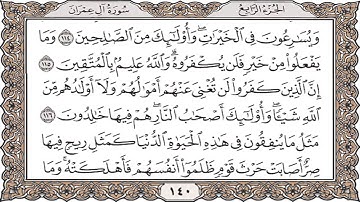 سورة آل عمران الجزء الرابع
ويسارعون في الخيرات وأولئك من الصالحين ١١٤ وما
يفعلوا من خير فلن يكفروه والله عليم بالمتقين ١١٥
إن الذين كفروا لن تغني عنهم أموالهم ولا أولادهم من
الله شيئا وأولئك أصحاب النار هم فيها خالدون ١١٦
مثل ما ينفقون في هذه الحيوة الدنيا كمثل ريح فيها
صر أصابت حرث قوم ظلموا أنفسهم فأهلكته وما
١٤٠